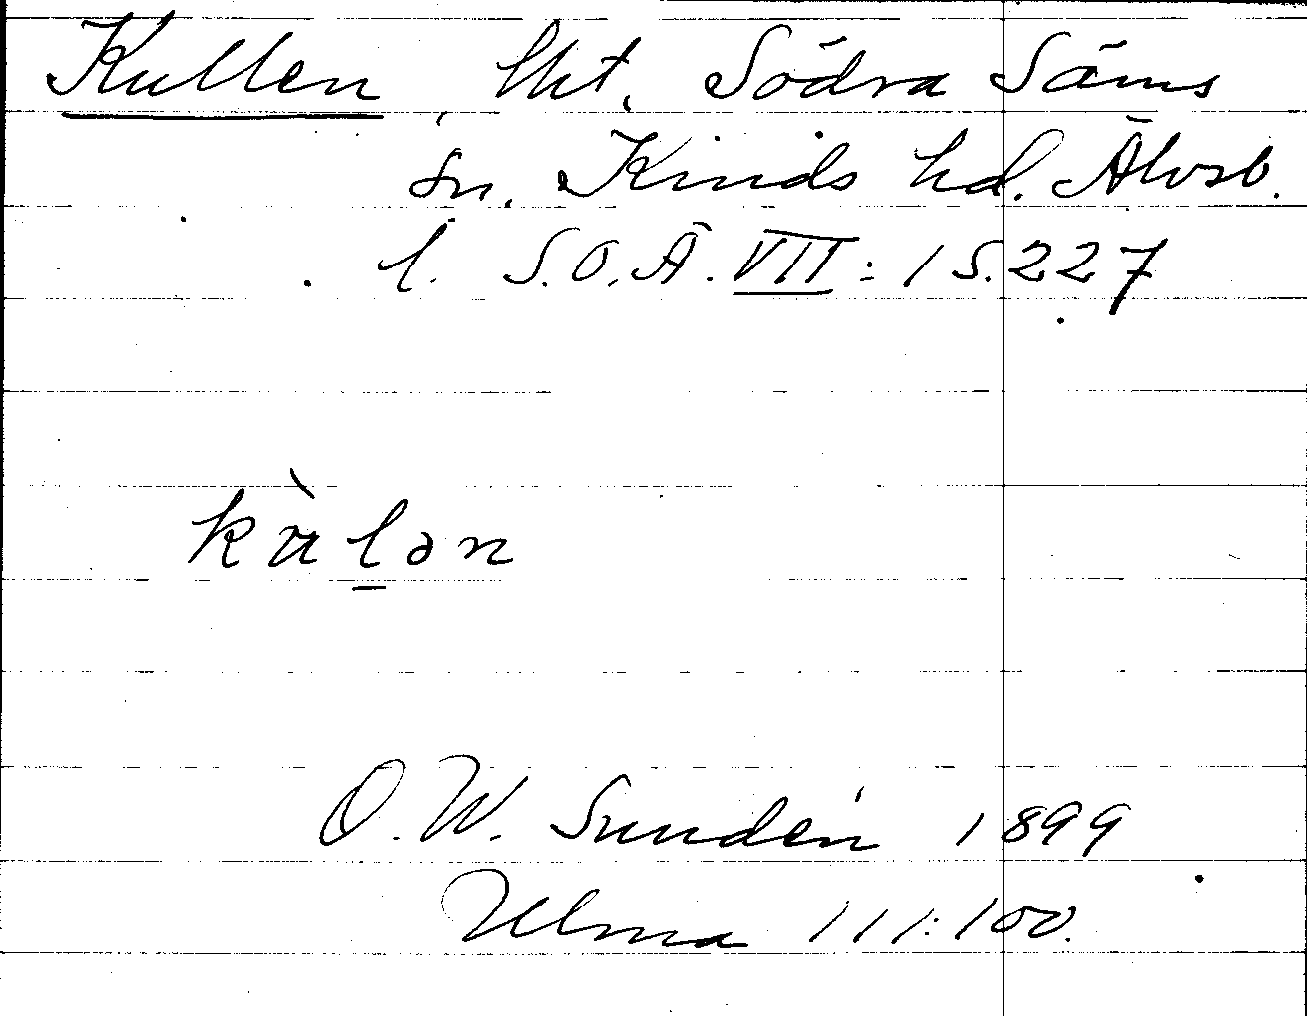 Kullen, lht. Södra Säms
sn. Kinds hd. Älvsb.
l. S.O.Ä. VII: 1 S. 227
kàlən
O. W. Sundén 1899
Ulma 111:100.